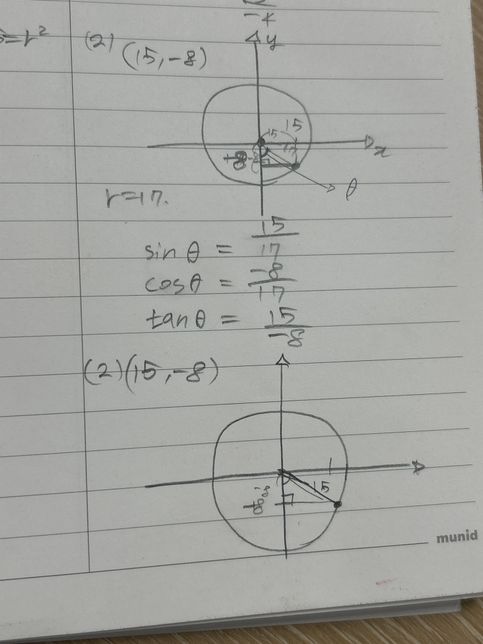 -x
=r²
(2) (15, -8)
y
15
15
17
-8
x
θ
r=17.
sin θ = 15/17
cosθ = -8/17
tanθ = 15/-8
(2)(15, -8)
15
munid